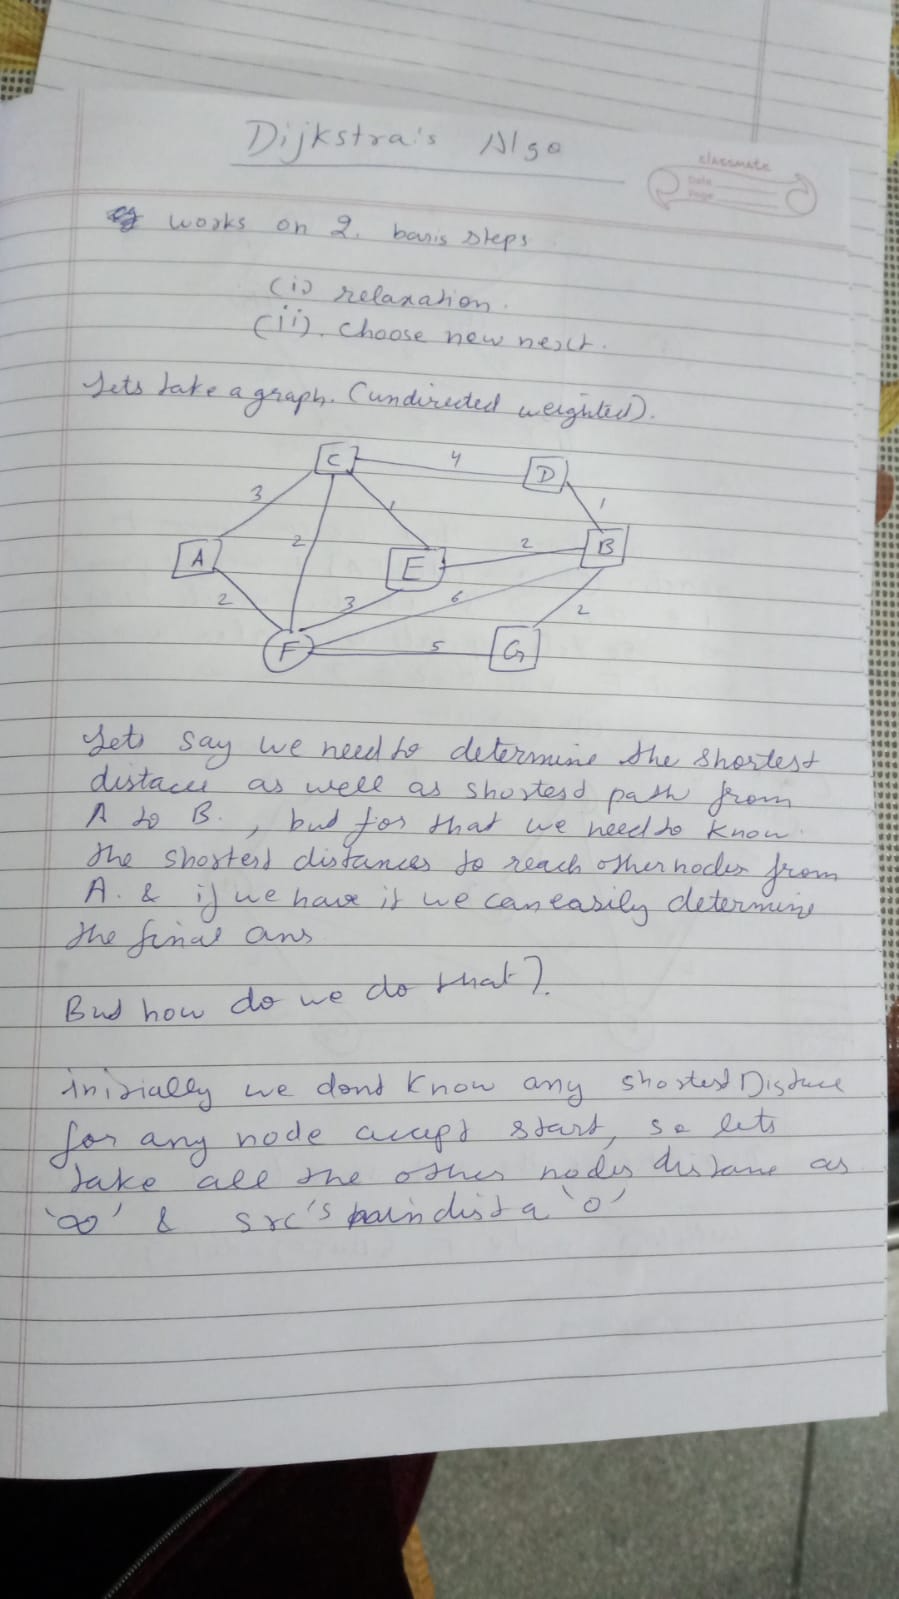 Dijkstra's Algo
classmate
Date
Page
works on 2. basis steps
(i) relaxation.
(ii). Choose new next.
Lets take a graph. (undirected weighted).
C 4 D
3 1 1
A 2 E 2 B
2 3 6 2
F 5 G
Lets say we need to determine the shortest
distaces as well as shortest path from
A to B. , but for that we need to know.
the shortest distances to reach other nodes from
A. & if we have it we can easily determine
the final ans
But how do we do that?.
initially we dont know any shortest Distace
for any node accept start, so lets
take all the other nodes distane as
'∞' & src's dist a '0'